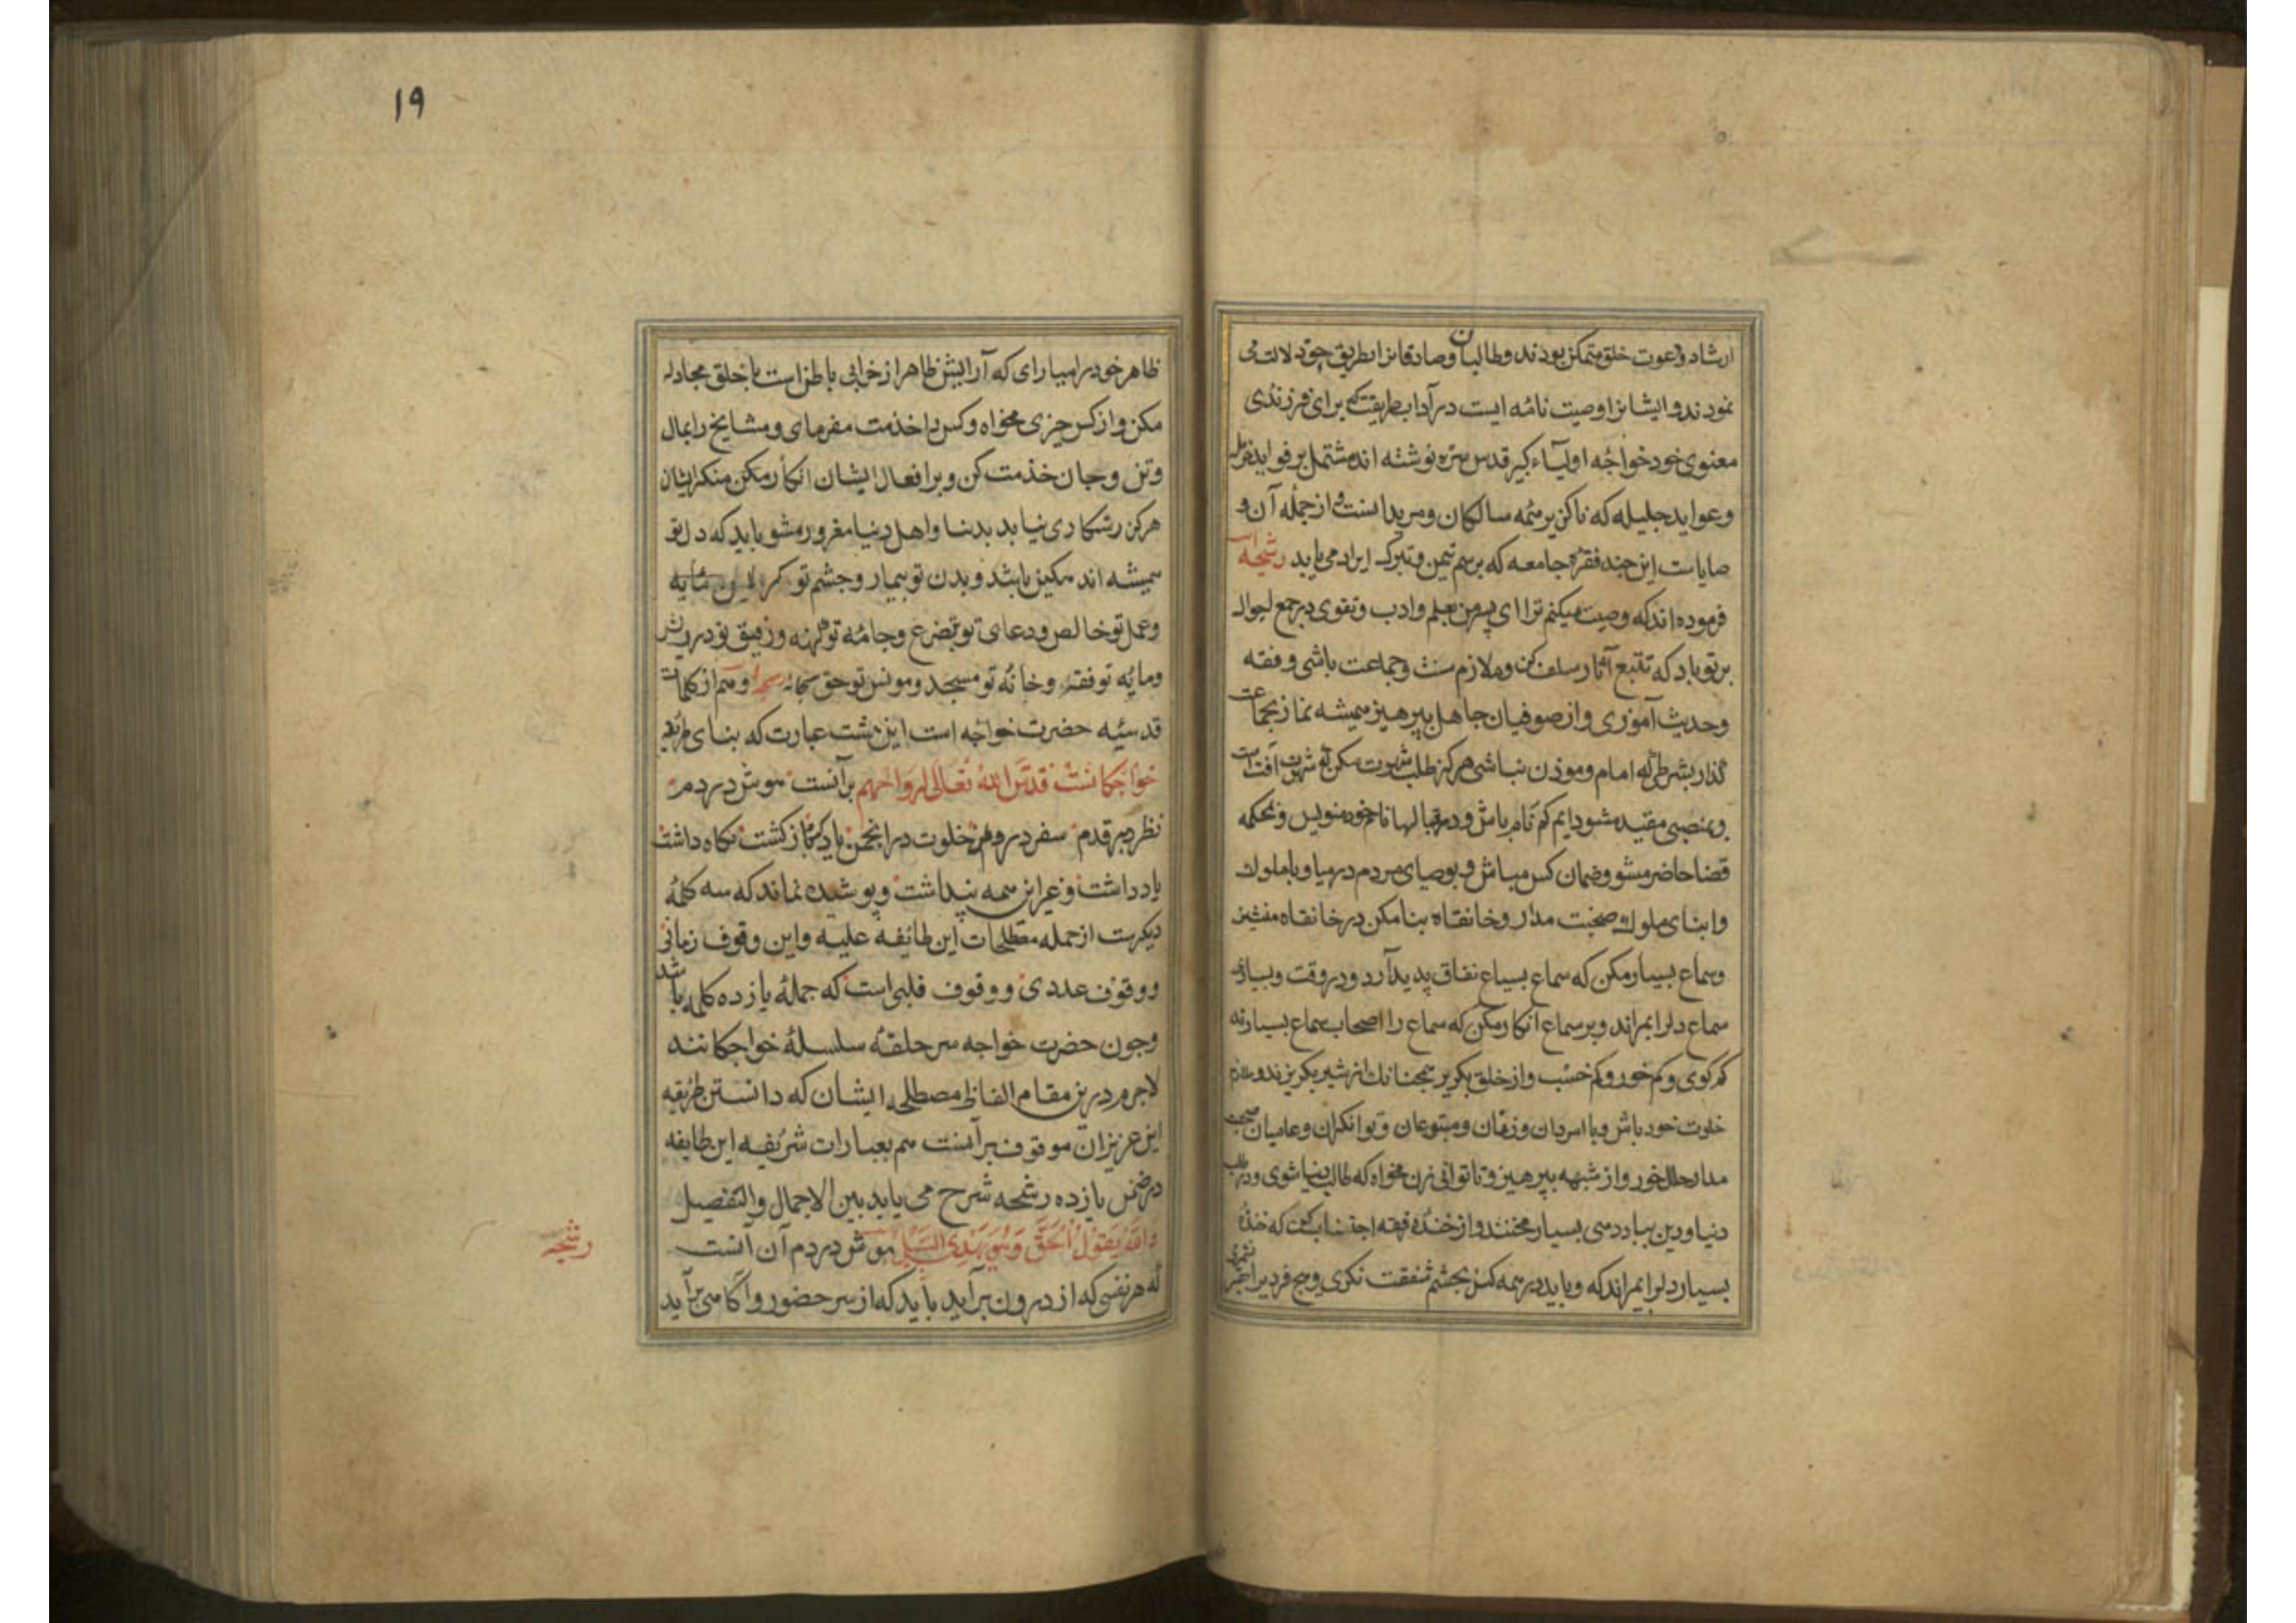 ارشاد و دعوت خلق متمکن بودند و طالبان و صادقانرا بطریق حق دلالت می
نمودند و ایشانرا وصیت نامه ایست در آداب طریقت که برای فرزندی
معنوی خود خواجه اولیاء کبیر قدس سره نوشته اند مشتمل بر فواید
و عواید جلیله که ناگزیر همه سالکان و مریدانست و از جمله آن و
صایاست این چند فقره جامعه که برسم تیمن و تبرک ایراد می یابد رشحه
فرموده اند که وصیت میکنم ترا ای پسرمن بعلم وادب و تقوی در جمع احوال
بر تو باد که تتبع آثار سلف کن و ملازم سنت و جماعت باشی و فقه
و حدیث آموزی و از صوفیان جاهل بپرهیز همیشه نماز بجماعت
گذار بشرطی که امام و موذن نباشی هرگز طلب شهرت مکن که شهرت آفت است
و بمنصبی مقید مشو دایم گم نام باش و در قبالها نام خود منویس و بمحکمه
قضا حاضر مشو و ضمان کس مباش و بوصیای مردم درمیا و با ملوک
و ابنای ملوک صحبت مدار و خانقاه بنا مکن در خانقاه منشین
و سماع بسیار مکن که سماع بسیاع نفاق پدید آرد و در وقت و بسیاری
سماع دلرا بمیراند و بر سماع انکار مکن که سماع را اصحاب سماع بسیارند
کم کوی و کم خور و کم خسب و از خلق بگریز همچنانک از شیر بگریزند و ملازم
خلوت خود باش و با امردان و زنان و مبتدعان و توانکران و عامیان صحبت
مدار حلال خور و از شبهه بپرهیز و تا توانی زن مخواه که طالب دنیا شوی و در طلب
دنیا و دین بباد دهی بسیار مخند و از خنده قهقه اجتناب کن که خنده
بسیار دلرا بمیراند که و باید در همه کس بچشم شفقت نگری و هیچ فردیرا حقیر نشمری
۱۹
ظاهر خود را میارای که آرایش ظاهر از خرابی باطن است با خلق مجادله
مکن و از کس چیزی مخواه و کس را خدمت مفرمای و مشایخ را بمال
و تن و جان خذمت کن و بر افعال ایشان انکار مکن منکر ایشان
هرکز رستکاری نیابد بدنیا و اهل دنیا مغرور مشو باید که دل تو
همیشه اندهکین باشد و بدن تو بیمار و چشم تو
و عمل تو خالص و دعای تو بتضرع و جامه تو کهنه و رفیق تو درویش
و مایه تو فقه و خانه تو مسجد و مونس تو حق سبحانه رشحه و هم از کلمات
قدسیه حضرت خواجه است این هشت عبارت که بنای طریقه
خواجکانست قدس الله تعالی ارواحهم بر آنست هوش در دم
نظر بر قدم سفر در وطن خلوت در انجمن یاد کرد باز کشت نگاه داشت
یاد داشت و غیر این همه پنداشت و پوشیده نماند که سه کلمه
دیکرست از جمله مصطلحات این طایفه علیه و این وقوف زمانی
و وقوف عددی و وقوف قلبی است که جمله یازده کلمه باشد
و چون حضرت خواجه سر حلقه سلسله خواجکانند
لاجرم درین مقام الفاظ مصطلحه ایشان که دانستن طریقه
این عزیزان موقوف بر آنست هم بعبارات شریفه این طایفه
در ضمن یازده رشحه شرح می یابد بین الاجمال والتفصیل
والله یقول الحق و هو یهدی السبیل هوش در دم آن آنست
که هر نفسی که از درون بر آید باید که از سر حضور و آکاهی بر آید
رشحه